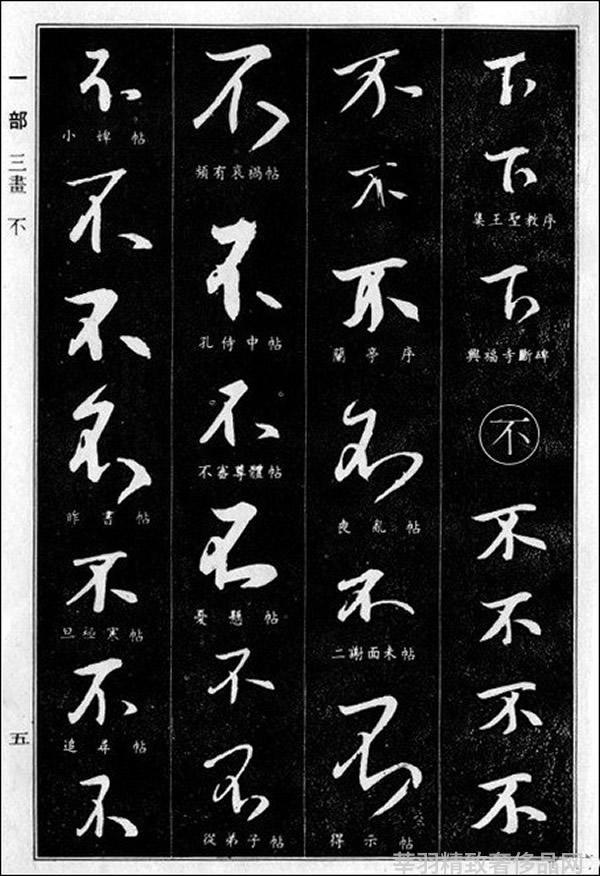 下
下
集王聖教序
下
興福寺斷碑
不
不
不
不
不
不
不
不
蘭亭序
不
喪亂帖
不
二謝面未帖
不
得示帖
不
頻有哀禍帖
不
孔侍中帖
不
不審尊體帖
不
憂懸帖
不
不
從弟子帖
不
小婢帖
不
不
不
昨書帖
不
旦極寒帖
不
追尋帖
不
一部 三畫 不
五
羽精致奢侈品网